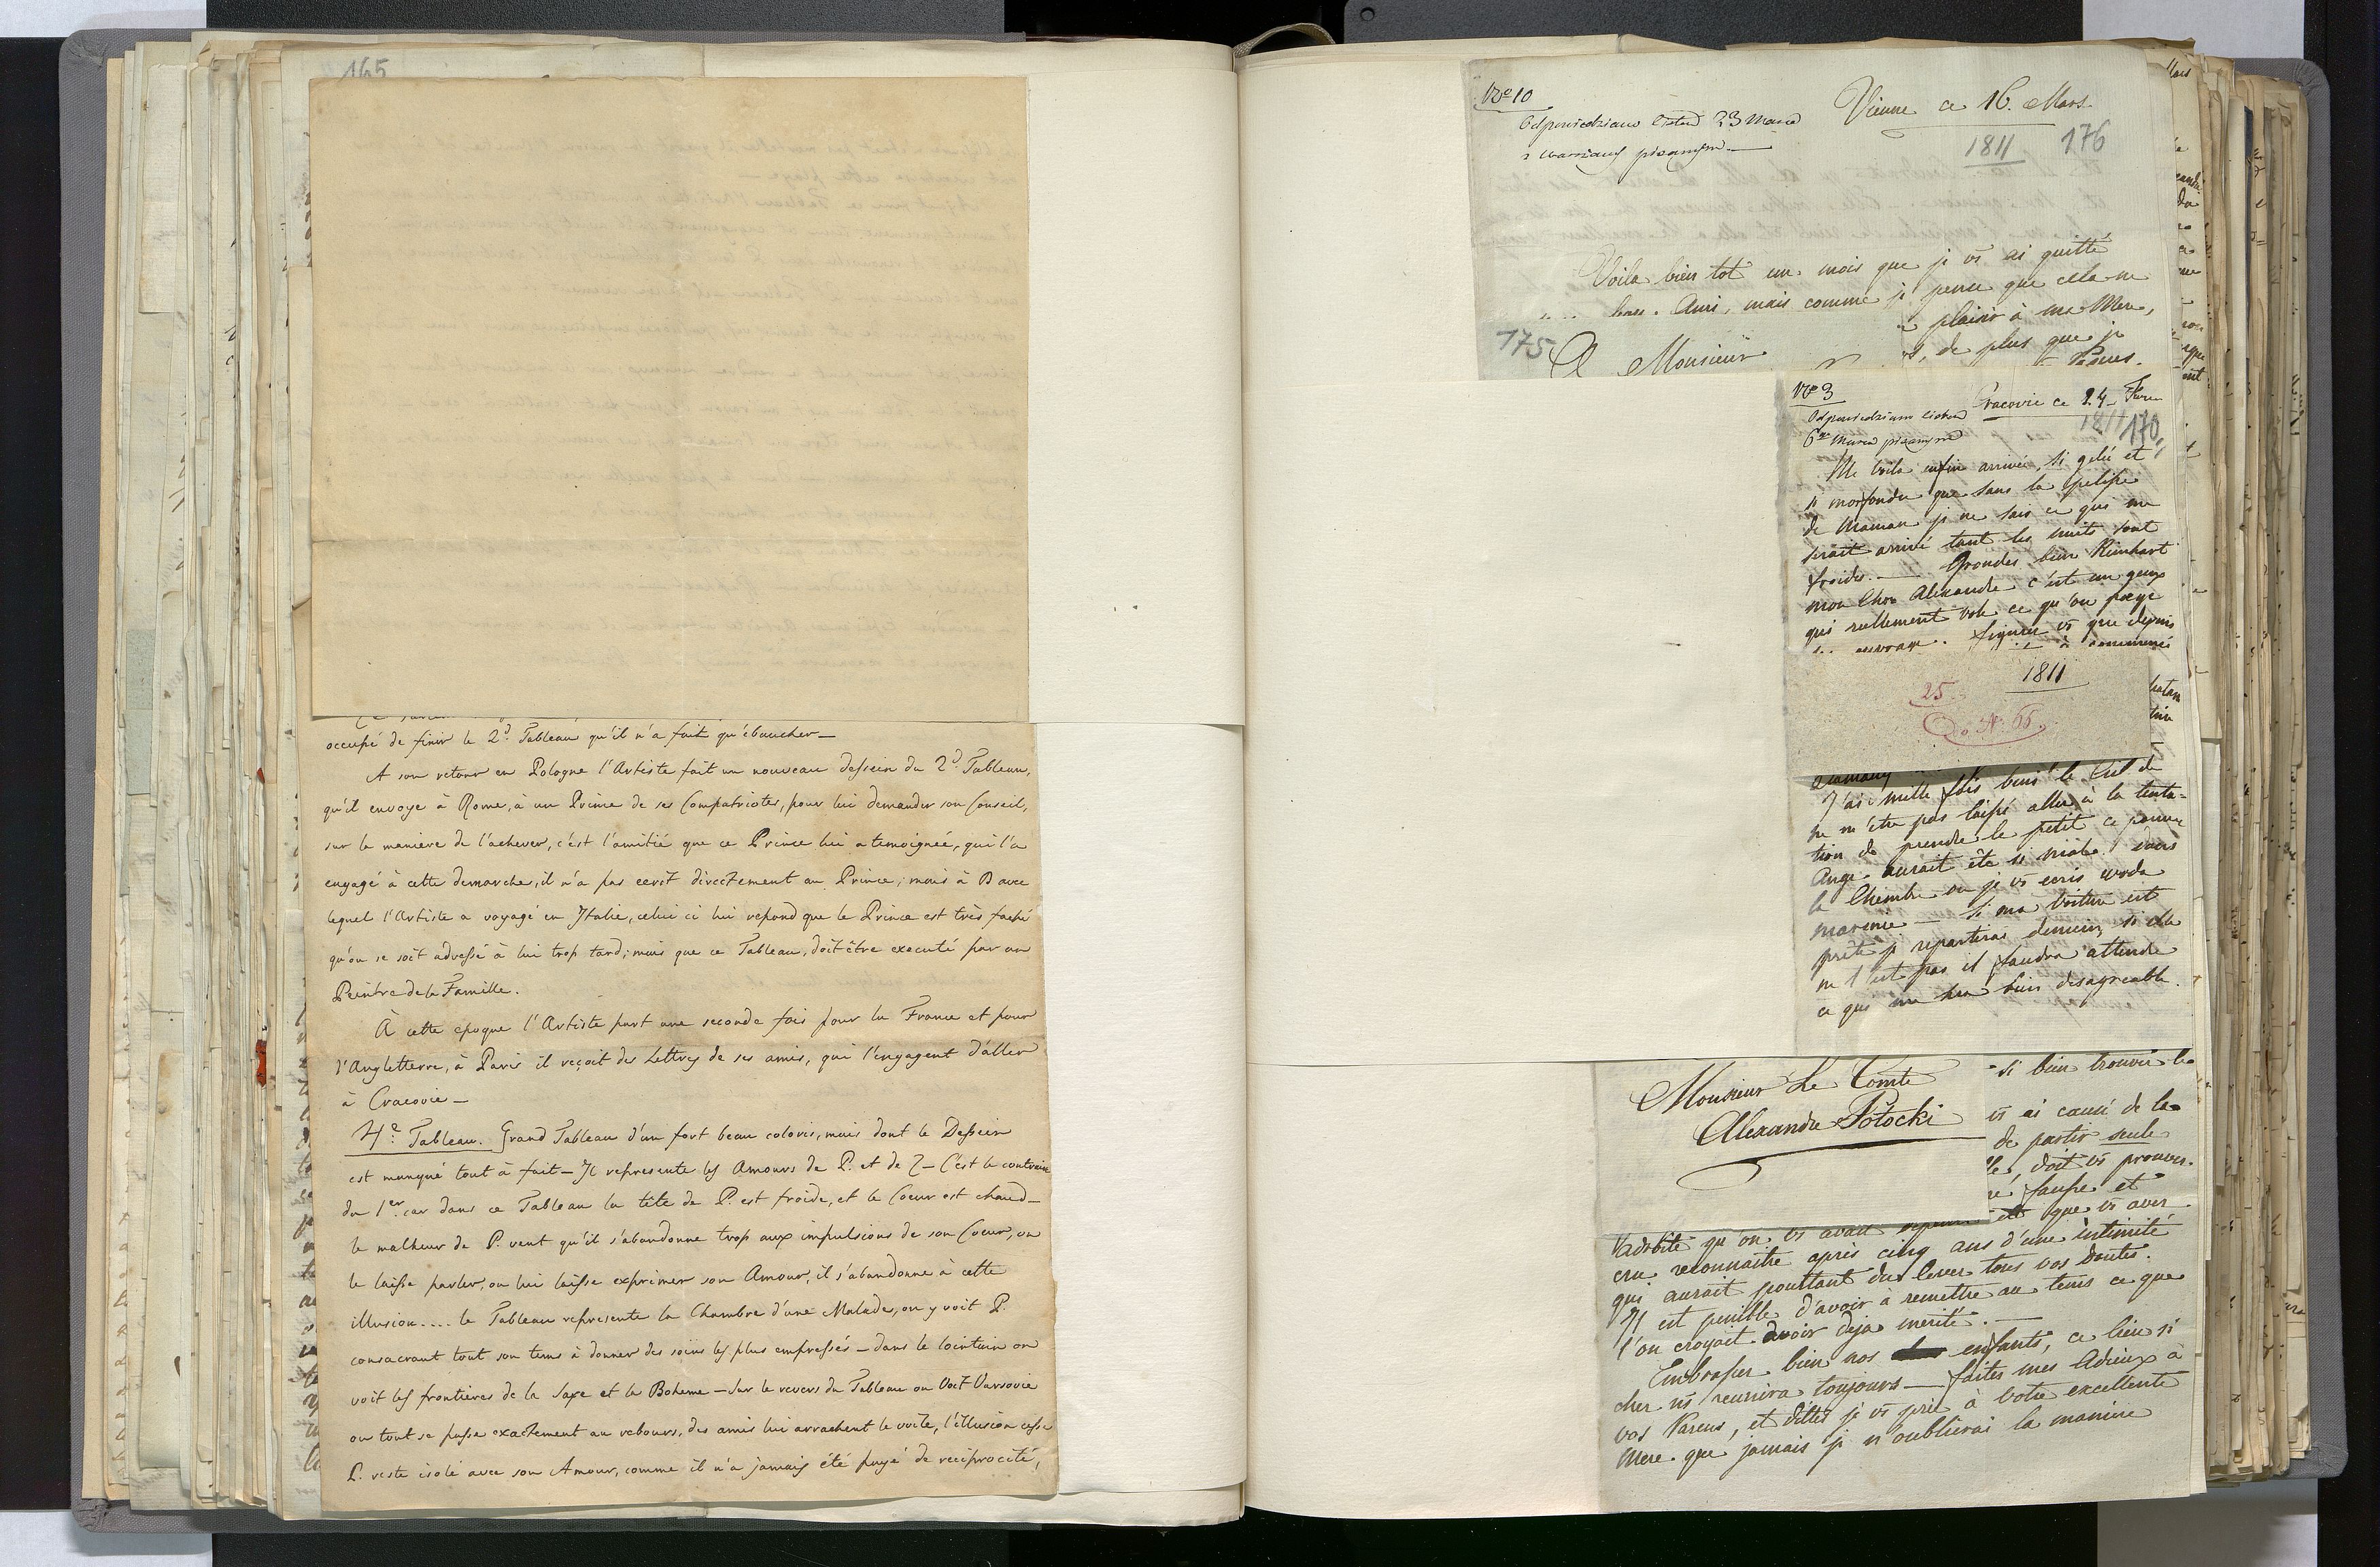 165
occupé de finir le 2d. Tableau qu'il n'a fait qu'ébaucher—
A son retour en Pologne l'Artiste fait un nouveau dessein du 2d. Tableau,
qu'il envoye à Rome, à un Prince de ses Compatriotes, pour lui demander son Conseil,
sur la maniere de l'achever, c'est l'amitié que ce Prince lui a temoignée, qui l'a
engagé à cette demarche, il n'a pas ecrit directement au Prince; mais à B avec
lequel l'Artiste a voyagé en Italie, celui ci lui repond que le Prince est très faché
qu'on se soit adressé à lui trop tard; mais que ce Tableau, doit être executé par un
Peintre de la Famille.
À cette epoque l'Artiste part une seconde fois pour la France et pour
l'Angleterre, à Paris il reçoit des Lettres de ses amis, qui l'engagent d'aller
à Cracovie—
4e. Tableau. Grand Tableau d'un fort beau coloris, mais dont le Dessein
est manqué tout à fait— Il represente les Amours de P. et de Z— C'est le contraire
du 1er. car dans ce Tableau la tête de P. est froide, et le Coeur est chaud—
le malheur de P. veut qu'il s'abandonne trop aux impulsions de son Coeur, on
le laisse parler, on lui laisse exprimer son Amour, il s'abandonne à cette
illusion.... le Tableau represente la Chambre d'une Malade, on y voit P.
consacrant tout son tems à donner des soins les plus empressés— dans le lointain on
voit les frontieres de la Saxe et la Boheme— Sur le revers du Tableau on Voit Varsovie
ou tout se passe exactement au rebours, des amis lui arrachent le voile, l'illusion cesse
P. reste isolé avec son Amour, comme il n'a jamais été payé de reciprocité,
No 10
Odpowiedziano listem 23 Marca
z Warszawy pisanym.—
Vienne ce 16. Mars.
1811 176
Voila bien tot un mois que je vs ai quitté
Ami, mais comme je pense que cela ne
plaisir à ma Mere,
de plus que je
175
A Monsieur
No 3
Cracovie ce 24 Fev
Odpowiedziano listem
6go Marca pisanym
1811 170
Me voila enfin arrivée, si gelée et
si morfondue que sans la pelisse
de Maman je ne sais ce qui me
serait arrivé tant les nuits sont
froides.— Grondez bien Reinhart
mon Cher Alexandre c'est un gueux
qui reellement vole ce qu'on paye
ouvrage. figurez vs que depuis
à commencé
1811
25
Do N. 66
J'ai mille fois beni le Ciel de
ne m'etre pas laissé aller à la tenta-
tion de prendre le petit ce pauvre
Ange aurait été si mal dans
la Chambre ou je vs ecris
Si ma voiture est
prete je repartirai demain, si elle
ne l'est pas il faudra attendre
ce qui me sera bien desagreable.
Monsieur Le Comte
Alexandre Potocki
si bien trouver le
vs ai causé de la
de partir seule
doit vs prouver
fausse et
qu'on vs avait que vs avez
cru reconnaitre après cinq ans d'une intimité
qui aurait pourtant du lever tous vos doutes.
Il est penible d'avoir à remettre au tems ce que
l'on croyait avoir deja merité.—
Embrasser bien nos enfants, ce lien si
cher ns reunira toujours— faites mes Adieux à
vos Parens, et dittes je vs prie à votre excellente
Mere que jamais je n'oublierai la maniere